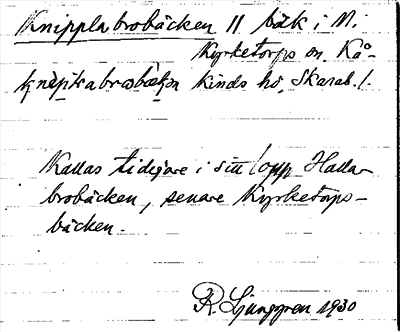 Knippla brobäcken || bäk i N.
Kyrketorps sn. Kå-
kinds hd, Skarab. l.
Kallas tidigare i sitt lopp Halla-
brobäcken, senare Kyrketorps-
bäcken.
R. Ljunggren 1930